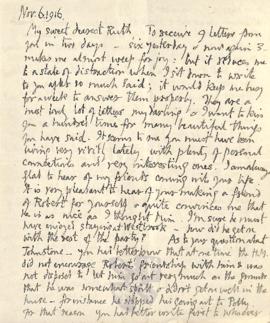 Nov. 6. 1916.
My sweet dearest Ruth, To receive 9 letters from
you in two days — six yesterday & now again 3
makes me almost weep for joy: but it reduces me
to a state of distraction when I sit down to write
to you after so much said; it would keep me busy
for a week to answer them properly. They are a
most lovely lot of letters my darling & I want to kiss
you a hundred times for many beautiful things
you have said. It seems to me you must have been
living very lately with plenty of personal
and very interesting ones. I'm always
glad to hear of my friends coming into your life.
It is very pleasant to hear of your making a friend
of Robert for yourself & quite convinces me that
he is as nice as I thought him. I'm sure he must
have enjoyed staying at Westbrook — how did he get on
with the rest of the party? As to your question about
Johnstone — you had better know that at one time the H.M.
did not encourage Robert's friendship with him & was
not disposed to let him go out very much on the grounds
that he was somewhat spoilt & didn't get on well in the
house — for instance he stopped his going out to
for that reason you had better write first to